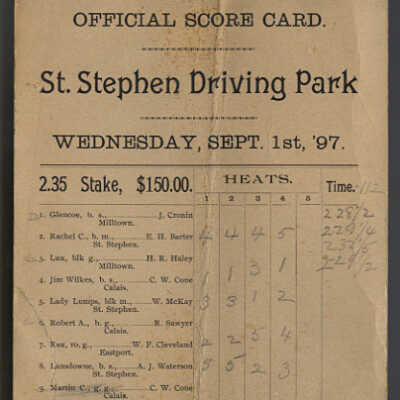 OFFICIAL SCORE CARD.
St. Stephen Driving Park
WEDNESDAY, SEPT. 1st, '97.
2.35 Stake, $150.00. HEATS. Time.
1 2 3 4 5
1. Glencoe, b. s., J. Cronin
Milltown.
2. Rachel C., b. m., E. H. Barter 4 4 4 5
St. Stephen.
3. Lux, blk g., H. R. Haley 1 1 3 1
Milltown.
4. Jim Wilkes, b. s., C. W. Cone
Calais.
5. Lady Lumps, blk m., W. McKay 3 3 1 2
6. Robert A., b. g., R. Sawyer
Calais.
7. Rex, ro. g., W. F. Cleveland 2 2 5 4
Eastport.
8. Lansdowne, b. s., A. J. Waterson 5 5 2 3
St. Stephen.
9. Martin C., g. g., C. W. Cone
Calais.